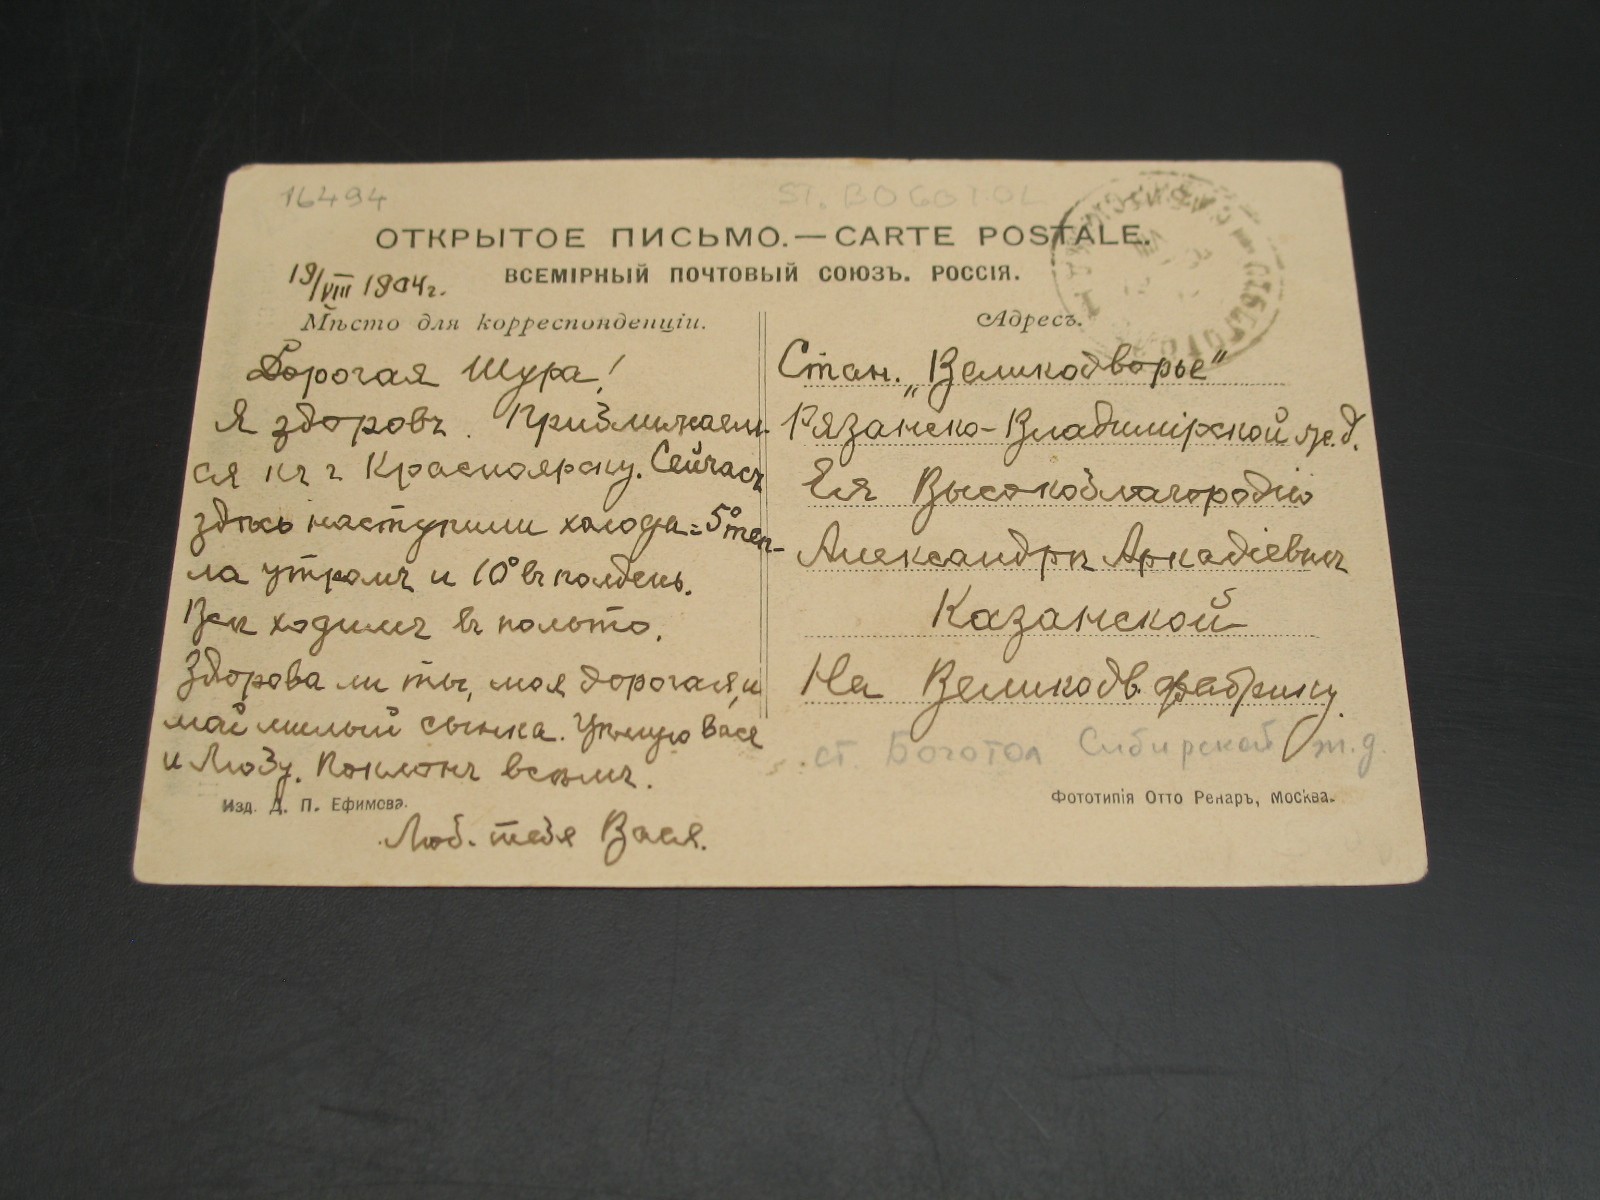 16494
ST. BOGOTOL
ОТКРЫТОЕ ПИСЬМО.—CARTE POSTALE.
ВСЕМІРНЫЙ ПОЧТОВЫЙ СОЮЗЪ. РОССІЯ.
19/VIII 1904 г.
Мѣсто для корреспонденціи.
Дорогая Шура!
Я здоровъ. Приближаем-
ся къ г Красноярску. Сейчасъ
здѣсь наступили холода = 5° теп-
ла утромъ и 10° въ полдень.
Всѣ ходимъ въ польто.
Здорова ли ты, моя дорогая, и
мой милый сынка. Цѣлую Васе
и Любу. Поклонъ всѣмъ.
Изд. Д. П. Ефимова.
Люб. тебя Вася.
Адресъ.
Стан. „Великодворье"
Рязанско-Владимірской ж.д.
Ея Высокоблагородію
Александрѣ Аркадіевнѣ
Казанской
На Великодв. фабрику.
ст. Боготол Сибирской ж.д.
Фототипія Отто Ренаръ, Москва.